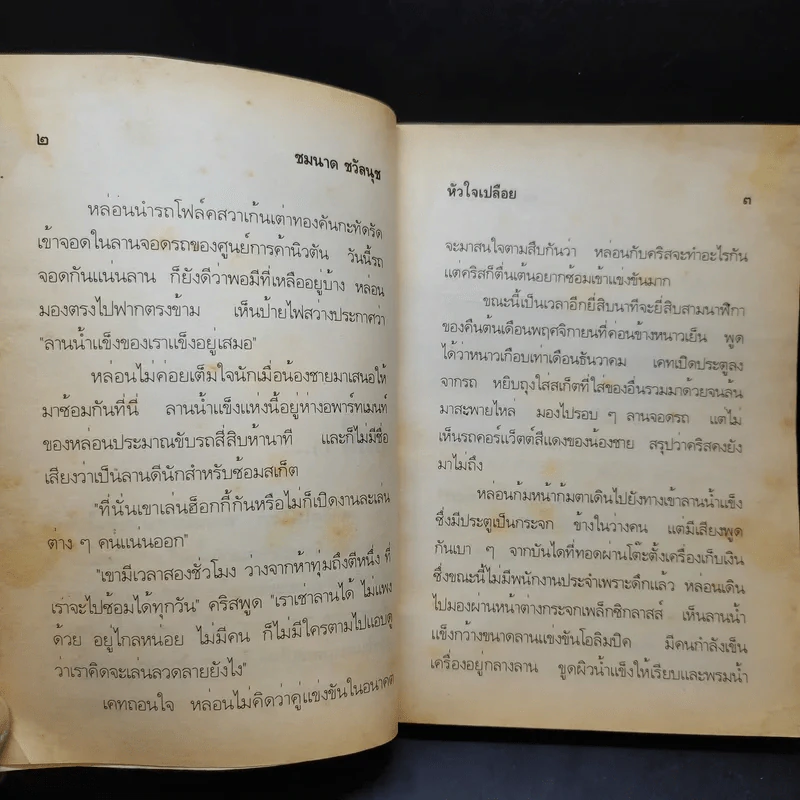 ๒
ชมนาด ชวัลนุช
หล่อนนำรถโฟล์คสวาเก้นเต่าทองคันกะทัดรัด
เข้าจอดในลานจอดรถของศูนย์การค้านิวตัน วันนี้รถ
จอดกันแน่นลาน ก็ยังดีว่าพอมีที่เหลืออยู่บ้าง หล่อน
มองตรงไปฟากตรงข้าม เห็นป้ายไฟสว่างประกาศว่า
"ลานน้ำแข็งของเราแข็งอยู่เสมอ"
หล่อนไม่ค่อยเต็มใจนักเมื่อน้องชายมาเสนอให้
มาซ้อมกันที่นี่ ลานน้ำแข็งแห่งนี้อยู่ห่างอพาร์ทเมนท์
ของหล่อนประมาณขับรถสี่สิบห้านาที และก็ไม่มีชื่อ
เสียงว่าเป็นลานดีนักสำหรับซ้อมสเก็ต
"ที่นั่นเขาเล่นฮ็อกกี้กันหรือไม่ก็เปิดงานละเล่น
ต่าง ๆ คนแน่นออก"
"เขามีเวลาสองชั่วโมง ว่างจากห้าทุ่มถึงตีหนึ่ง ที่
เราจะไปซ้อมได้ทุกวัน" คริสพูด "เราเช่าลานได้ ไม่แพง
ด้วย อยู่ไกลหน่อย ไม่มีคน ก็ไม่มีใครตามไปแอบดู
ว่าเราคิดจะเล่นลวดลายยังไง"
เคทถอนใจ หล่อนไม่คิดว่าคู่แข่งขันในอนาคต
หัวใจเปลือย
๓
จะมาสนใจตามสืบกันว่า หล่อนกับคริสจะทำอะไรกัน
แต่คริสก็ตื่นเต้นอยากซ้อมเข้าแข่งขันมาก
ขณะนี้เป็นเวลาอีกยี่สิบนาทีจะยี่สิบสามนาฬิกา
ของคืนต้นเดือนพฤศจิกายนที่ค่อนข้างหนาวเย็น พูด
ได้ว่าหนาวเกือบเท่าเดือนธันวาคม เคทเปิดประตูลง
จากรถ หยิบถุงใส่สเก็ตที่ใส่ของอื่นรวมมาด้วยจนล้น
มาสะพายไหล่ มองไปรอบ ๆ ลานจอดรถ แต่ไม่
เห็นรถคอร์แว็ตต์สีแดงของน้องชาย สรุปว่าคริสคงยัง
มาไม่ถึง
หล่อนก้มหน้าก้มตาเดินไปยังทางเข้าลานน้ำแข็ง
ซึ่งมีประตูเป็นกระจก ข้างในว่างคน แต่มีเสียงพูด
กันเบา ๆ จากบันไดที่ทอดผ่านโต๊ะตั้งเครื่องเก็บเงิน
ซึ่งขณะนี้ไม่มีพนักงานประจำเพราะดึกแล้ว หล่อนเดิน
ไปมองผ่านหน้าต่างกระจกเพล็กซิกลาสส์ เห็นลานน้ำ
แข็งกว้างขนาดลานแข่งขันโอลิมปิค มีคนกำลังเข็น
เครื่องอยู่กลางลาน ขูดผิวน้ำแข็งให้เรียบและพรมน้ำ